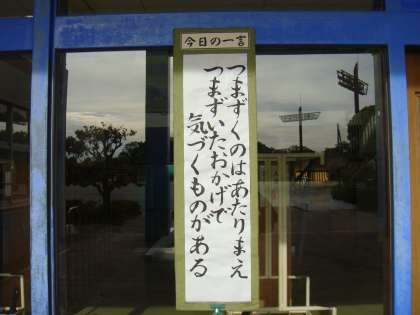 今日の一言
つまずくのはあたりまえ
つまずいたおかげで
気づくものがある